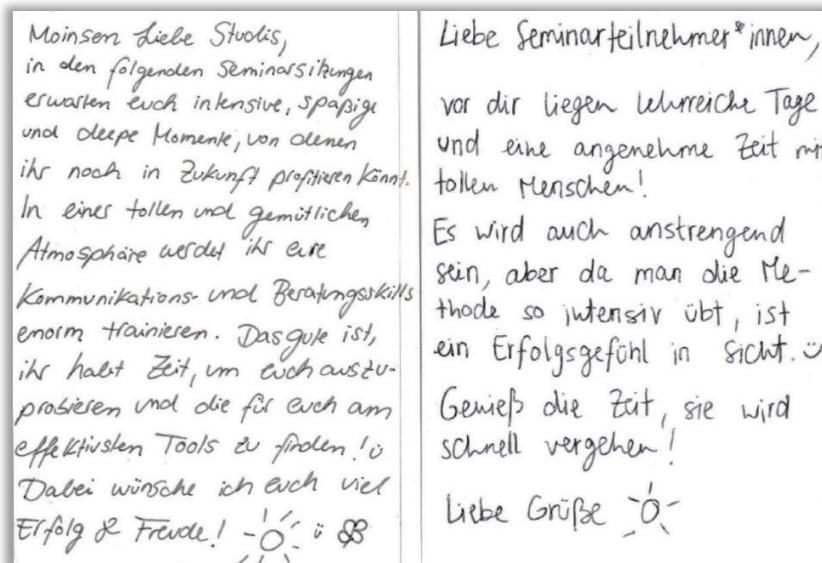 Moinsen Liebe Studis,
in den folgenden Seminarsitzungen
erwarten euch intensive, spaßige
und deepe Momente, von denen
ihr noch in Zukunft profitieren könnt.
In einer tollen und gemütlichen
Atmosphäre werdet ihr eure
Kommunikations- und Beratungsskills
enorm trainieren. Das gute ist,
ihr habt Zeit, um euch auszu-
probieren und die für euch am
effektivsten Tools zu finden! ü
Dabei wünsche ich euch viel
Erfolg & Freude! ü
Liebe Seminarteilnehmer*innen,
vor dir liegen lehrreiche Tage
und eine angenehme Zeit mit
tollen Menschen!
Es wird auch anstrengend
sein, aber da man die Me-
thode so intensiv übt, ist
ein Erfolgsgefühl in Sicht. ü
Genieß die Zeit, sie wird
schnell vergehen!
Liebe Grüße